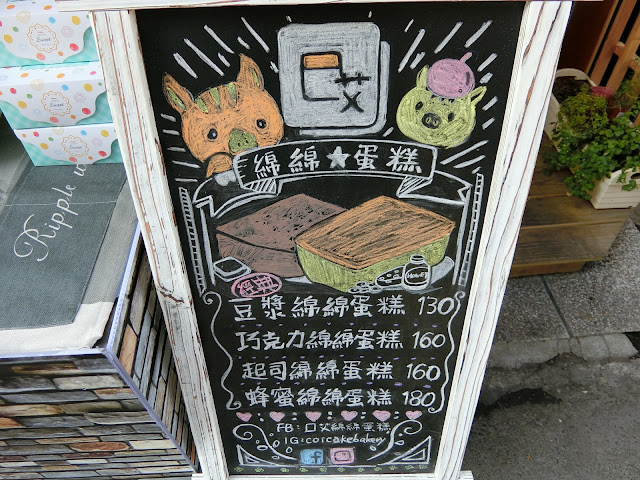 口艾
綿綿★蛋糕
Honey
豆漿綿綿蛋糕 130
巧克力綿綿蛋糕 160
起司綿綿蛋糕 160
蜂蜜綿綿蛋糕 180
FB:口艾綿綿蛋糕
IG:coicakebakery
Ripple
Sweet